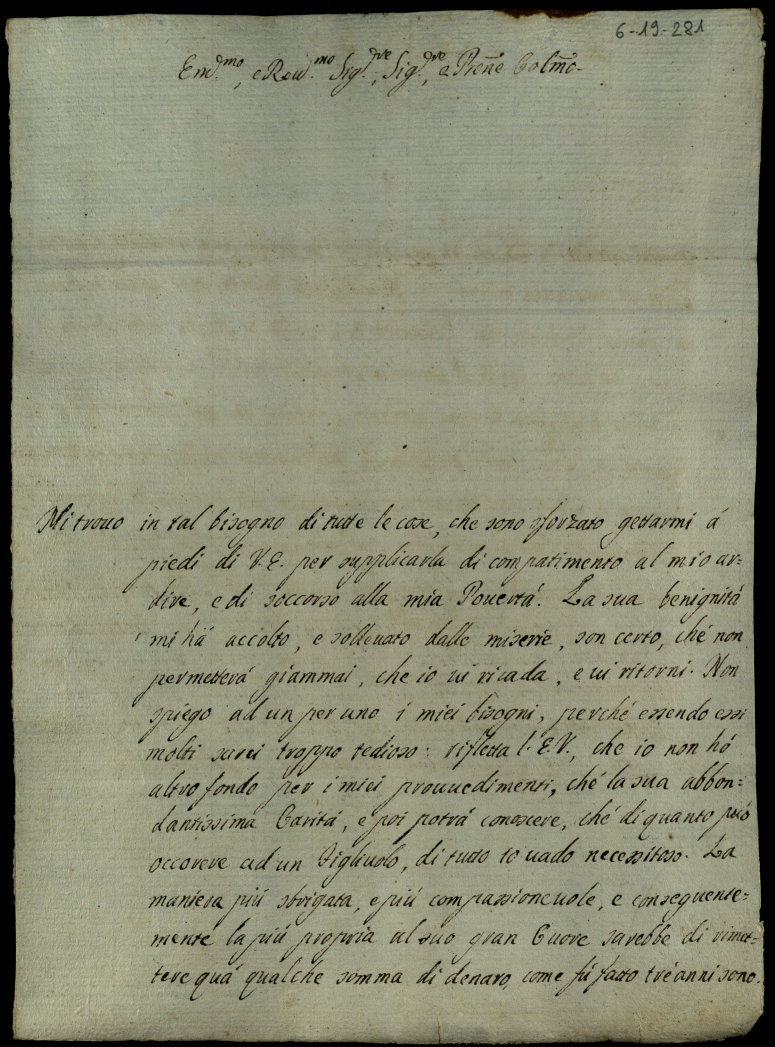 6-19-281
Em.mo, e Rev.mo Sig.re, Sig.re, e Prone Colmo.
Mi trovo in tal bisogno di tutte le cose, che sono sforzato gettarmi á
piedi di V.E. per supplicarla di compatimento al mio ar=
dire, e di soccorso alla mia Povertá. La sua benignitá
mi há accolto, e sollevato dalle miserie, son certo, ché non
permetterá giammai, che io vi ricada, e vi ritorni. Non
spiego ad un per uno i miei bisogni, perché essendo essi
molti sarei troppo tedioso: rifletta l'E.V., che io non hó
altro fondo per i miei provvedimenti, ché la sua abbon=
dantissima Caritá, e poi potrá conoscere, ché di quanto puó
occorrere ad un Figliuolo, di tutto io vado necessitoso. La
maniera piú sbrigata, e piú compassionevole, e conseguente=
mente la piú propria al suo gran Cuore sarebbe di rimet=
tere quá qualche somma di denaro, come fú fatto tré anni sono.